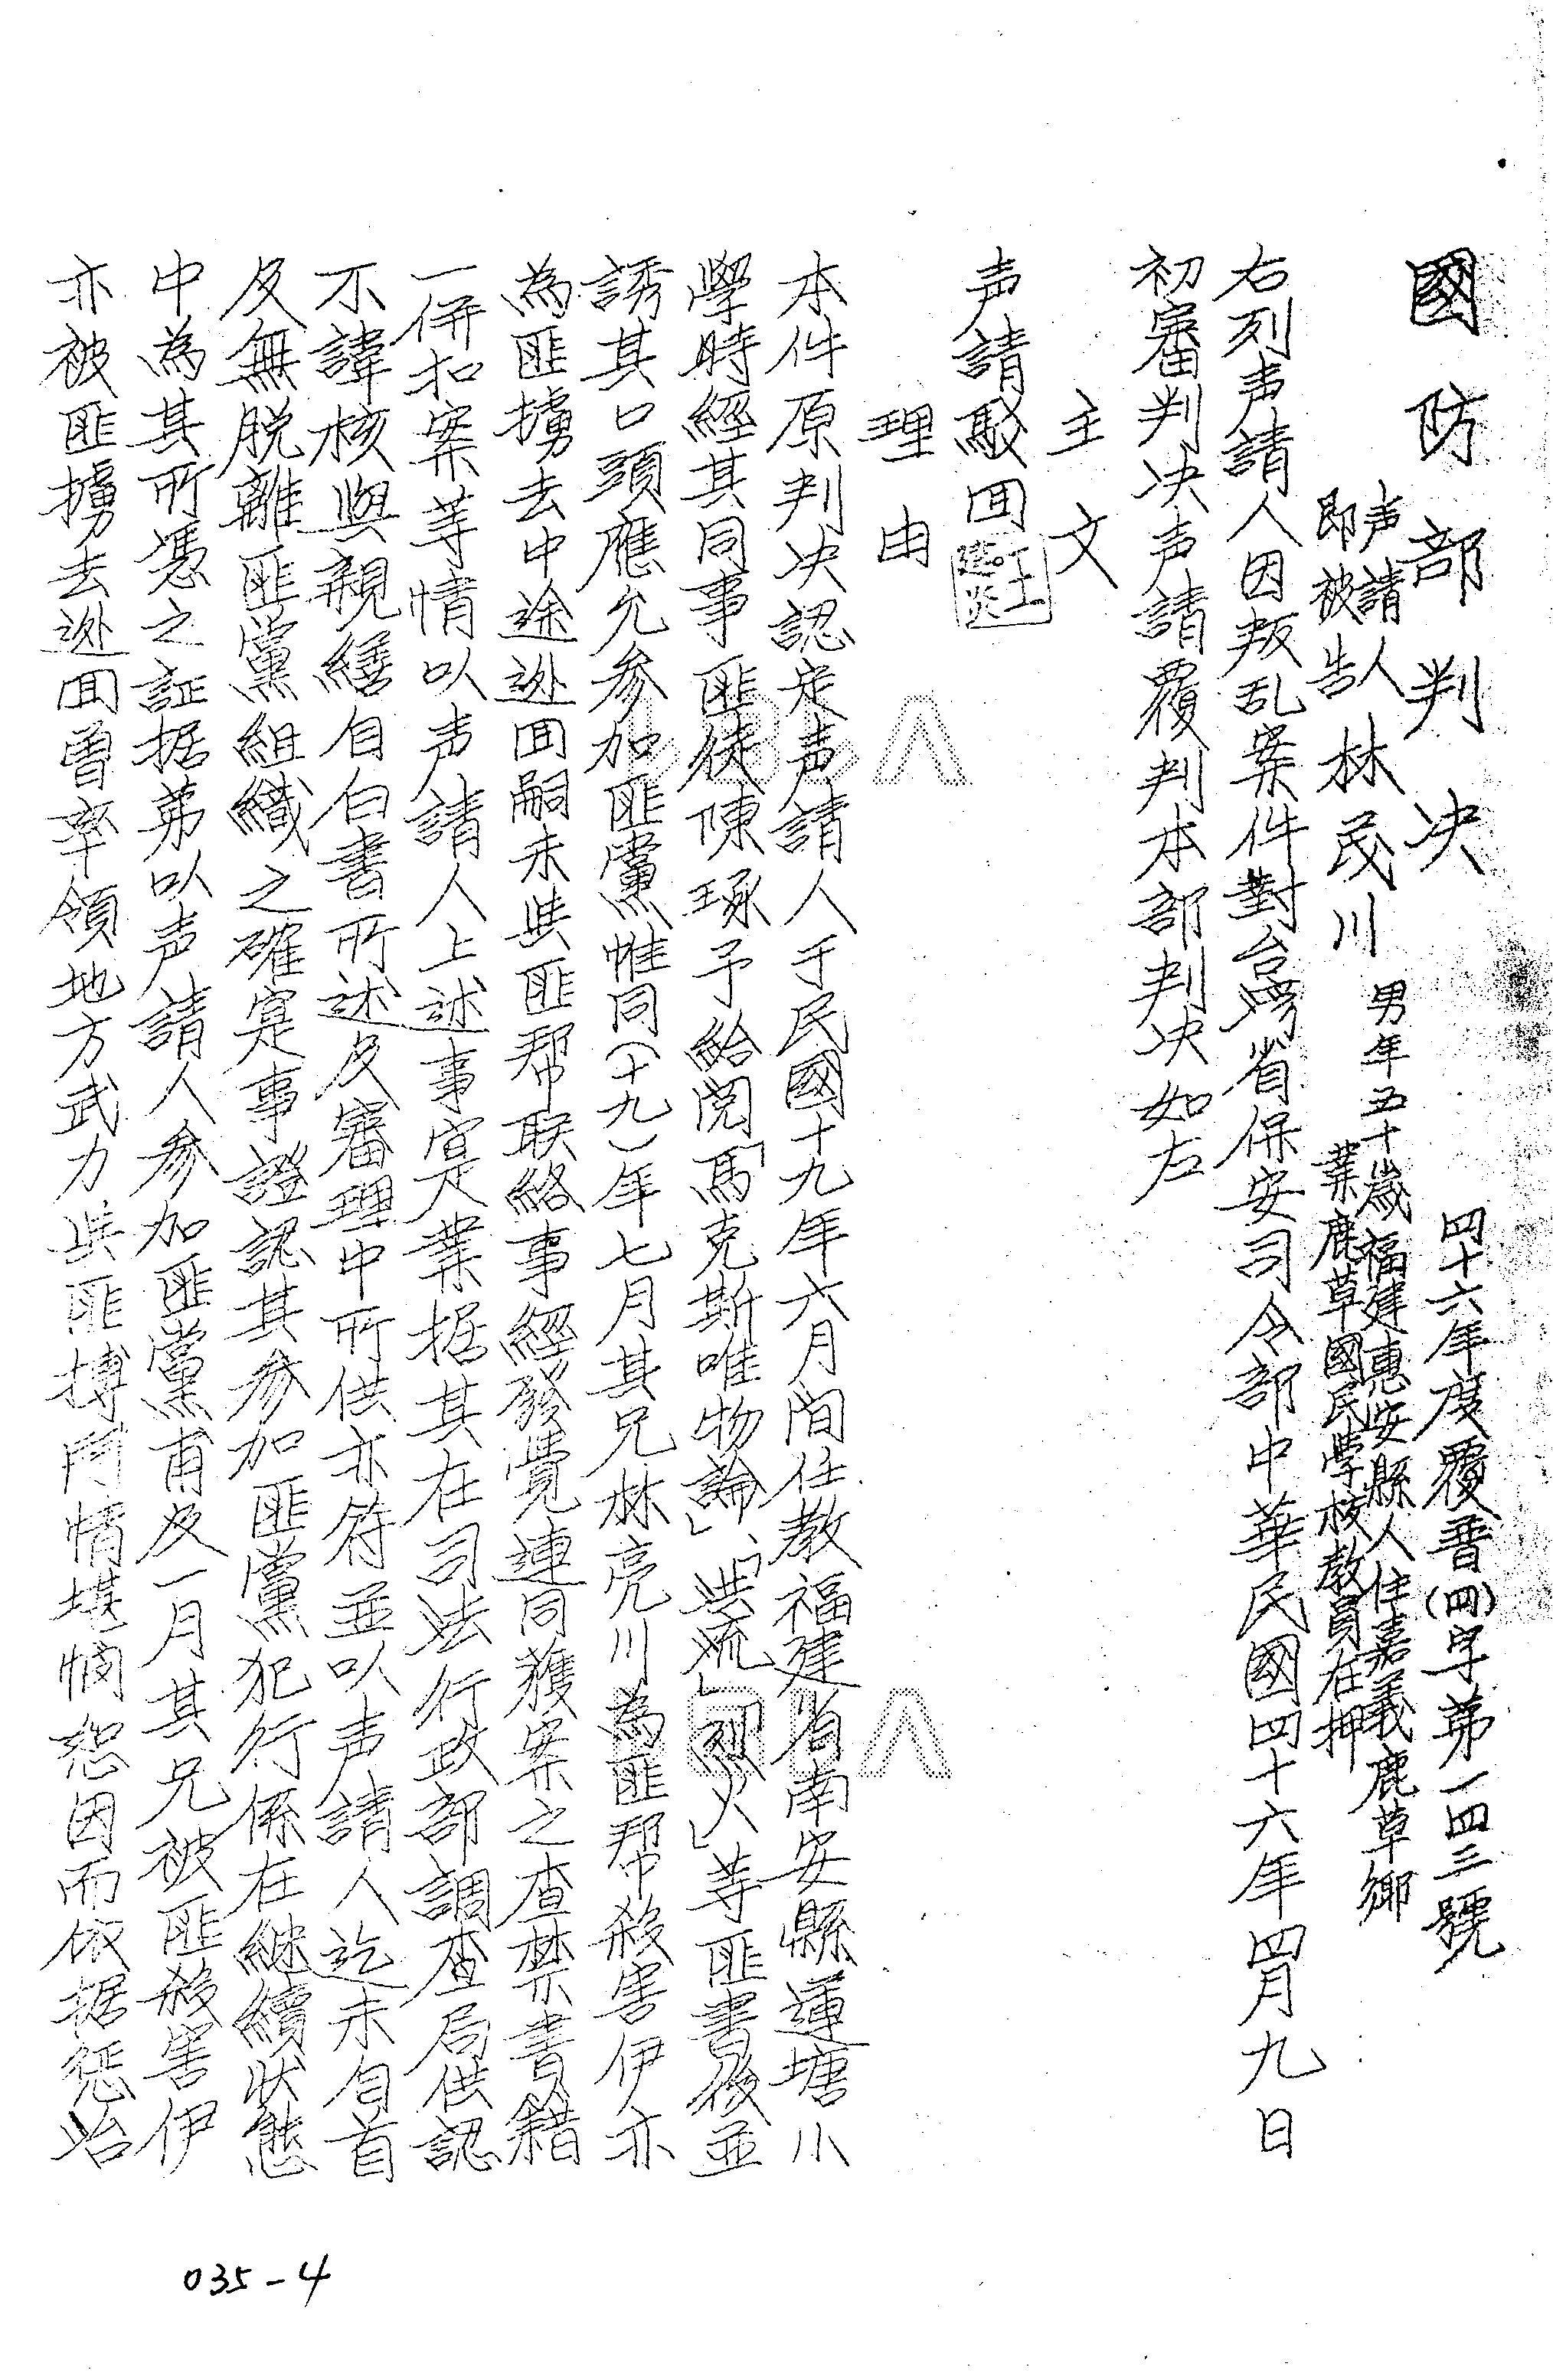 國防部判決
四十六年度覆普(四)字第一四三號
声請人
即被告
林茂川
男年五十歲福建惠安縣人住嘉義鹿草鄉
業鹿草國民學校教員在押
右列声請人因叛乱案件對台灣省保安司令部中華民國四十六年四月九日
初審判決声請覆判本部判決如左
主文
声請駁回
王
理由
本件原判決認定声請人于民國十九年六月间任教福建省南安縣蓮塘小
學時經其同事匪徒陳琢予給閱「馬克斯唯物論」、「洪流」「烈火」等匪書後並
誘其口頭應允參加匪黨惟同(十九)年七月其兄林亮川為匪帮殺害伊亦
為匪擄去中途逊回嗣未與匪帮联絡事經發覺連同獲案之查禁書籍
一併扣案等情以声請人上述事寔業据其在司法行政部調查局供認
不諱核與親繕自白書所述及審理中所供亦符並以声請人迄未自首
及無脱離匪黨組織之確寔事證認其參加匪黨犯行係在継續狀態
中為其所憑之証据第以声請人參加匪黨甫及一月其兄被匪殺害伊
亦被匪擄去逊回曾率領地方武力與匪搏鬥情堪憫恕因而依据惩治
035-4